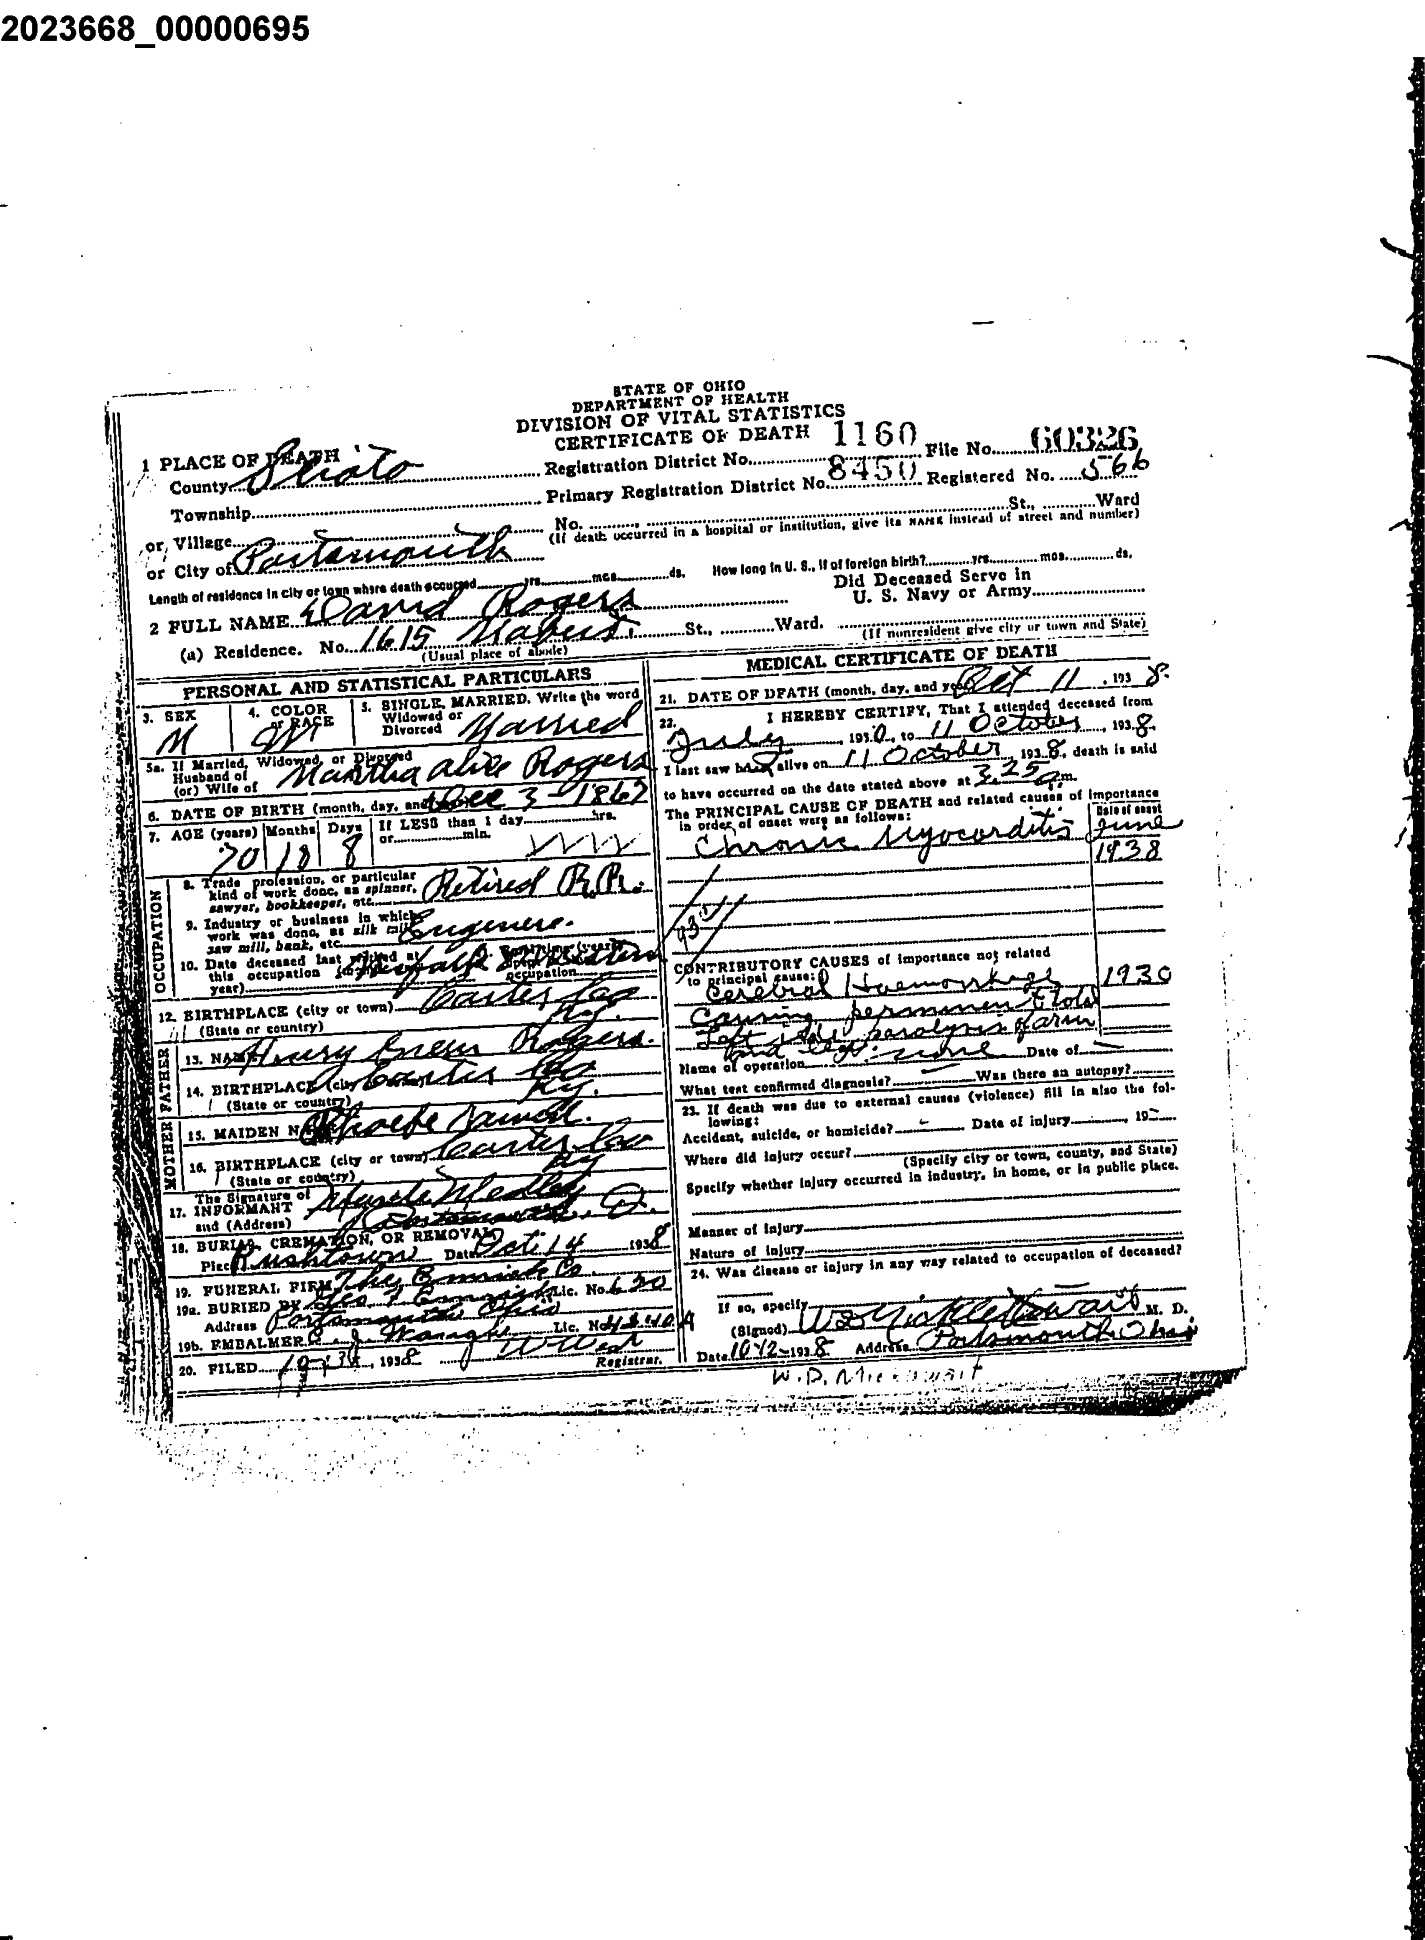 2023668_00000695
STATE OF OHIO
DEPARTMENT OF HEALTH
DIVISION OF VITAL STATISTICS
CERTIFICATE OF DEATH
1 PLACE OF DEATH
County Scioto Registration District No. 1160 File No. 60326
Township Primary Registration District No. 8450 Registered No. 566
or Village No. St., Ward
(If death occurred in a hospital or institution, give its NAME instead of street and number)
or City of Portsmouth
Length of residence in city or town where death occurred yrs. mos. ds. How long in U. S., if of foreign birth? yrs. mos. ds.
Did Deceased Serve in
U. S. Navy or Army
2 FULL NAME David Rogers
(a) Residence. No. 1615 St., Ward.
(Usual place of abode) (If nonresident give city or town and State)
PERSONAL AND STATISTICAL PARTICULARS
3. SEX M
4. COLOR or RACE W
5. SINGLE, MARRIED, Write the word
Widowed or
Divorced Married
5a. If Married, Widowed, or Divorced
Husband of
(or) Wife of Martha Alice Rogers
6. DATE OF BIRTH (month, day, and year) Dec 3 - 1867
7. AGE (years) 70 Months 10 Days 8 If LESS than 1 day hrs.
or min.
OCCUPATION
8. Trade, profession, or particular
kind of work done, as spinner,
sawyer, bookkeeper, etc. Retired R.R.
9. Industry or business in which
work was done, as silk mill,
saw mill, bank, etc. Engineer.
10. Date deceased last worked at
this occupation
year) Norfolk & Western
occupation
12. BIRTHPLACE (city or town) Carter Co
(State or country) Ky.
FATHER
13. NAME Henry Rogers.
14. BIRTHPLACE (city or town) Carter Co
(State or country) Ky.
MOTHER
15. MAIDEN NAME Phoebe
16. BIRTHPLACE (city or town) Carter Co
(State or country) Ky
17. The Signature of
INFORMANT Medley
and (Address) Portsmouth, O.
18. BURIAL, CREMATION, OR REMOVAL
Place Rushtown Date Oct 14 1938
19. FUNERAL FIRM The Emrick Co.
19a. BURIED BY Emrick Lic. No. 630
Address Portsmouth Ohio
19b. EMBALMER Lic. No.
20. FILED 1938 Registrar.
MEDICAL CERTIFICATE OF DEATH
21. DATE OF DEATH (month, day, and year) Oct 11, 1938.
22. I HEREBY CERTIFY, That I attended deceased from
July, 1930, to 11 October, 1938.
I last saw him alive on 11 October, 1938, death is said
to have occurred on the date stated above at 3.25 a m.
The PRINCIPAL CAUSE OF DEATH and related causes of importance
in order of onset were as follows: Date of onset
Chronic Myocarditis June
1938
CONTRIBUTORY CAUSES of importance not related
to principal cause:
Cerebral Haemorrhage 1930
causing permanent total
left side paralysis of arm
and leg.
Name of operation none Date of —
What test confirmed diagnosis? — Was there an autopsy?
23. If death was due to external causes (violence) fill in also the fol-
lowing:
Accident, suicide, or homicide? - Date of injury , 19-
Where did injury occur?
(Specify city or town, county, and State)
Specify whether injury occurred in industry, in home, or in public place.
Manner of Injury
Nature of Injury
24. Was disease or injury in any way related to occupation of deceased?
If so, specify
(Signed) M. D.
Date 10-12-1938 Address Portsmouth Ohio